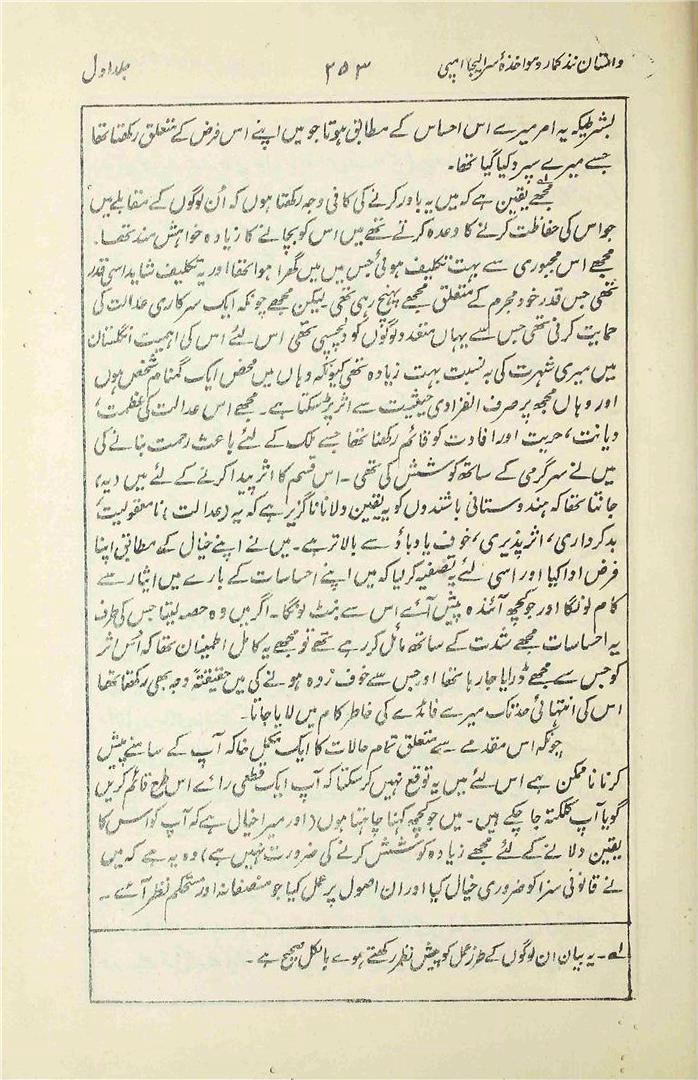 داستان نند کمار و مواخذۂ سر ایلیجا امپی ۲۵۳ جلد اول
بشرطیکہ یہ امر میرے اس احساس کے مطابق ہوتا جو میں اپنے اس فرض کے متعلق رکھتا تھا
جسے میرے سپرد کیا گیا تھا۔
مجھے یقین لہ ہے کہ میں یہ باور کرنے کی کافی وجہ رکھتا ہوں کہ اُن لوگوں کے مقابلے میں
جو اس کی حفاظت کرنے کا وعدہ کرتے تھے میں اس کو بچانے کا زیادہ خواہش مند تھا۔
مجھے اس مجبوری سے بہت تکلیف ہوئی جس میں میں گھرا ہوا تھا اور یہ تکلیف شاید اسی قدر
تھی جس قدر خود مجرم کے متعلق مجھے پہنچ رہی تھی لیکن مجھے چونکہ ایک سرکاری عدالت کی
حمایت کرنی تھی جس سے یہاں متعدد لوگوں کو دلچسپی تھی اس لئے اس کی اہمیت انگلستان
میں میری شہرت کی بہ نسبت بہت زیادہ تھی کیونکہ وہاں میں محض ایک گمنام شخص ہوں
اور وہاں مجھ پر صرف انفرادی حیثیت سے اثر پڑ سکتا ہے۔ مجھے اس عدالت کی عظمت،
دیانت، حریت اور افادت کو قائم رکھنا تھا جسے ملک کے لئے باعث رحمت بنانے کی
میں نے سرگرمی کے ساتھ کوشش کی تھی۔ اس قسم کا اثر پیدا کرنے کے لئے میں یہ
جانتا تھا کہ ہندوستانی باشندوں کو یہ یقین دلانا ناگزیر ہے کہ یہ (عدالت) نامعقولیت،
بدکرداری، اثر پذیری، خوف یا دباؤ سے بالاتر ہے۔ میں نے اپنے خیال کے مطابق اپنا
فرض ادا کیا اور اسی لئے یہ تصفیہ کر لیا کہ میں اپنے احساسات کے بارے میں ایثار سے
کام لونگا اور جو کچھ آئندہ پیش آئے اس سے بنٹ لونگا۔ اگر میں وہ حصہ لیتا جس کی طرف
یہ احساسات مجھے شدت کے ساتھ مائل کر رہے تھے تو مجھے یہ کامل اطمینان تھا کہ اُس اثر
کو جس سے مجھے ڈرایا جا رہا تھا اور جس سے خوف زدہ ہونے کی میں حقیقتہً وجہ بھی رکھتا تھا
اس کی انتہائی حد تک میرے فائدے کی خاطر کام میں لایا جاتا۔
چونکہ اس مقدمے سے متعلق تمام حالات کا ایک مکمل خاکہ آپ کے سامنے پیش
کرنا ناممکن ہے اس لئے میں یہ توقع نہیں کر سکتا کہ آپ ایک قطعی رائے اس طرح قائم کریں
گویا آپ کلکتہ جا چکے ہیں۔ میں جو کچھ کہنا چاہتا ہوں (اور میرا خیال ہے کہ آپ کو اس کا
یقین دلانے کے لئے مجھے زیادہ کوشش کرنے کی ضرورت نہیں ہے) وہ یہ ہے کہ میں
نے قانونی سزا کو ضروری خیال کیا اور ان اصول پر عمل کیا جو منصفانہ اور مستحکم نظر آئے۔
لہ۔ یہ بیان ان لوگوں کے طرز عمل کو پیش نظر رکھتے ہوے بالکل صحیح ہے۔